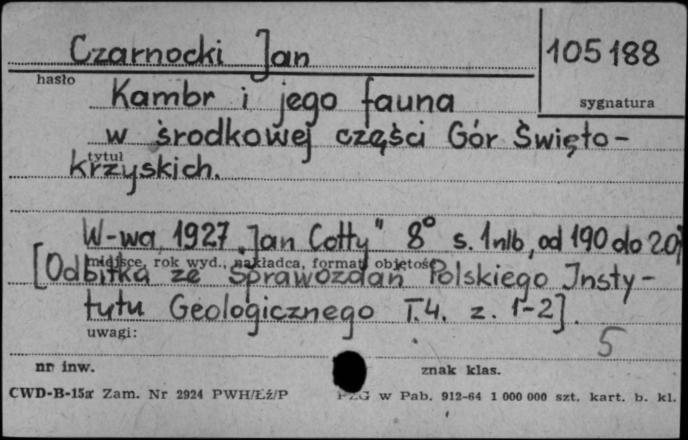 Czarnocki Jan
105188
hasło
sygnatura
Kambr i jego fauna
w środkowej części Gór Święto-
tytuł
krzyskich.
W-wa, 1927 "Jan Cotty" 8° s. 1nlb, od 190 do 207
miejsce, rok wyd., nakładca, format, objętość
[Odbitka ze Sprawozdań Polskiego Insty-
tutu Geologicznego T.4. z. 1-2].
uwagi:
5
nr inw.
znak klas.
CWD-B-15a Zam. Nr 2924 PWH/Łź/P
PZG w Pab. 912-64 1 000 000 szt. kart. b. kl.